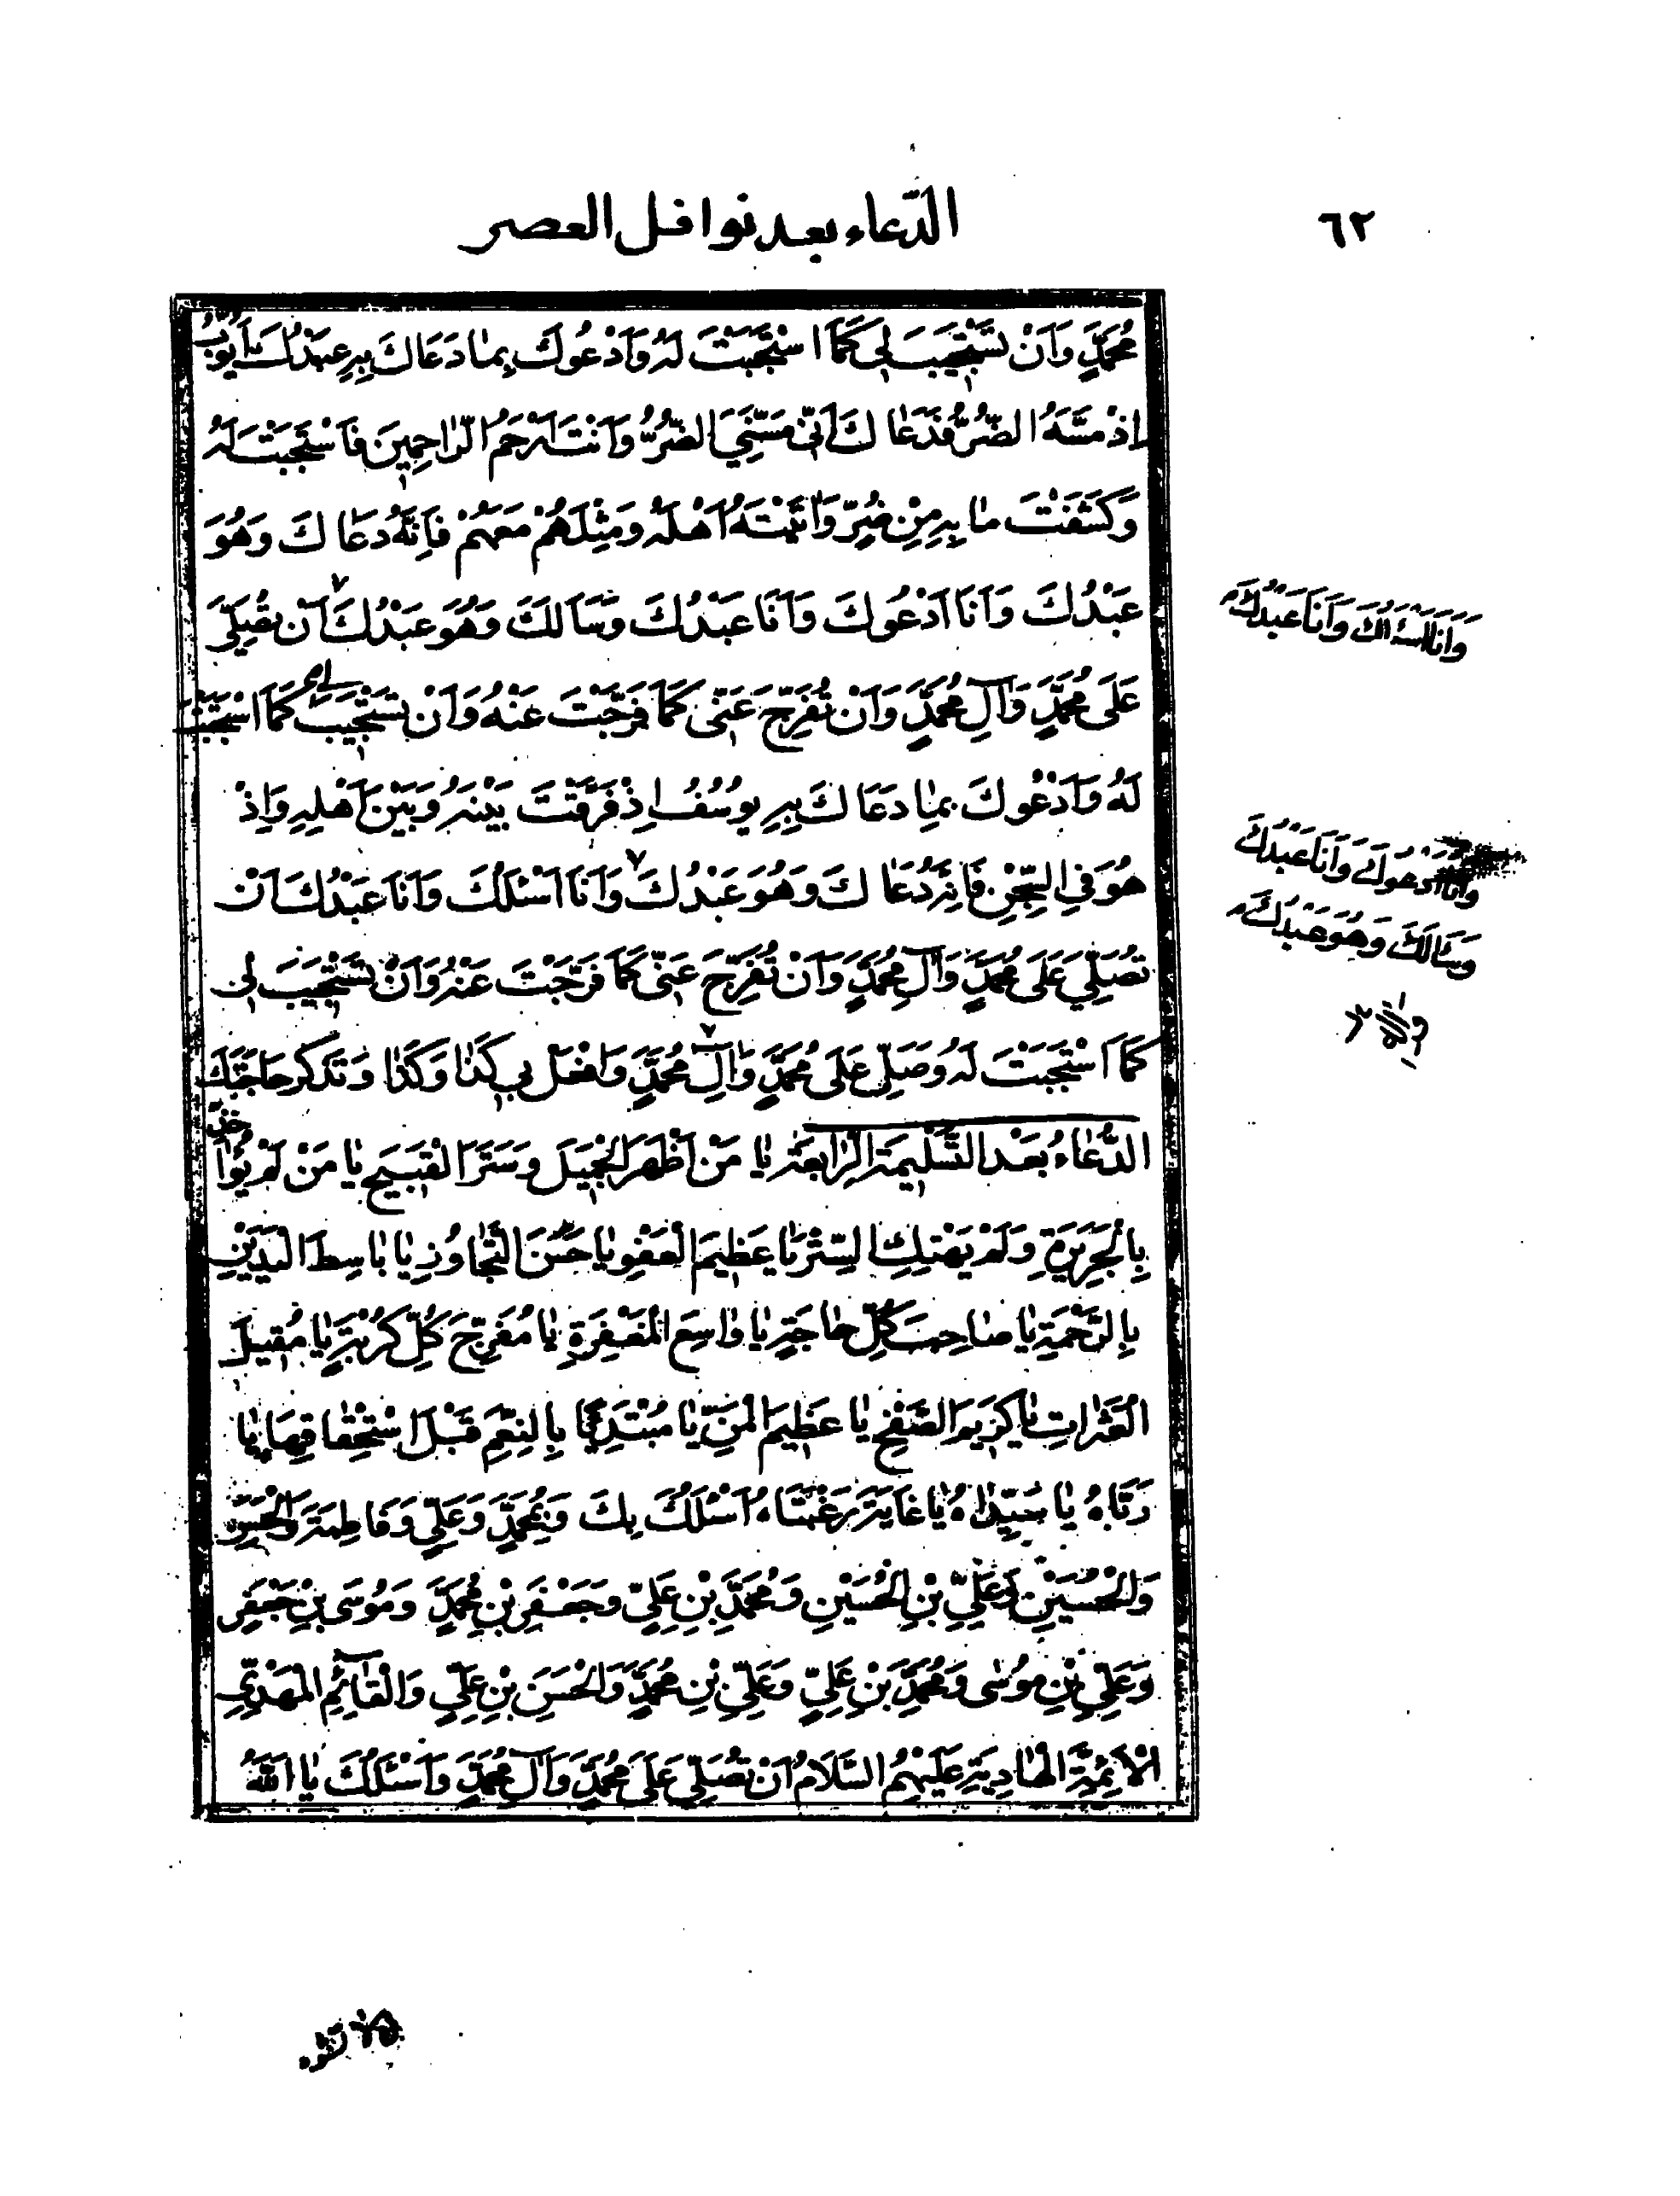 ٦٢
الدّعاء بعد نوافل العصر
مُحَمَّدٍ وَاَنْ تَسْتَجِيبَ لِي كَمَا اسْتَجَبْتَ لَهُ وَاَدْعُوكَ بِمٰا دَعَاكَ بِهِ عَبْدُكَ اَيُّوبُ
اِذْ مَسَّهُ الضُّرُّ فَدَعٰاكَ اَنّي مَسَّنِيَ الضُّرُّ وَاَنْتَ اَرْحَمُ الرّٰاحِمِينَ فَاسْتَجَبْتَ لَهُ
وَكَشَفْتَ مٰا بِهِ مِنْ ضُرٍّ وَاٰتَيْتَهُ اَهْلَهُ وَمِثْلَهُمْ مَعَهُمْ فَاِنَّهُ دَعٰاكَ وَهُوَ
عَبْدُكَ وَاَنَا اَدْعُوكَ وَاَنَا عَبْدُكَ وَسَاَلَكَ وَهُوَ عَبْدُكَ ٧ اَنْ تُصَلِّيَ
وَاَنَا اَسْئَلُكَ وَاَنَا عَبْدُكَ
عَلَى مُحَمَّدٍ وَآلِ مُحَمَّدٍ وَاَنْ تُفَرِّجَ عَنّي كَمَا فَرَّجْتَ عَنْهُ وَاَنْ تَسْتَجِيبَ لي كَمَا اسْتَجَبْتَ
لَهُ وَاَدْعُوكَ بِمٰا دَعَاكَ بِهِ يُوسُفُ اِذْ فَرَّقْتَ بَيْنَهُ وَبَيْنَ اَهْلِهِ وَاِذْ
هُوَ فِي السِّجْنِ فَاِنَّهُ دَعٰاكَ وَهُوَ عَبْدُكَ ٧ وَاَنَا اَسْئَلُكَ وَاَنَا عَبْدُكَ اَنْ
وَاَنَا اَدْعُوكَ وَاَنَا عَبْدُكَ
وَسَاَلَكَ وَهُوَ عَبْدُكَ
تُصَلِّيَ عَلَى مُحَمَّدٍ وَآلِ مُحَمَّدٍ وَاَنْ تُفَرِّجَ عَنّي كَمَا فَرَّجْتَ عَنْهُ وَاَنْ تَسْتَجِيبَ لِي
كَمَا اسْتَجَبْتَ لَهُ وَصَلِّ عَلَى مُحَمَّدٍ وَآلِ مُحَمَّدٍ وَافْعَلْ بِي كَذٰا وَكَذٰا وَتَذكر حَاجَتَكَ
الدُّعٰاءُ بَعْدَ التَّسْلِيمَةِ الرّٰابِعَةِ يٰا مَنْ اَظْهَرَ الْجَمِيلَ وَسَتَرَ الْقَبِيحَ يٰا مَنْ لَمْ يُؤٰاخِذْ
بِالْجَرِيرَةِ وَلَمْ يَهْتِكِ السِّتْرَ يٰا عَظِيمَ الْعَفْوِ يٰا حَسَنَ التَّجٰاوُزِ يٰا بٰاسِطَ الْيَدَيْنِ
بِالرَّحْمَةِ يٰا صٰاحِبَ كُلِّ حٰاجَةٍ يٰا وٰاسِعَ الْمَغْفِرَةِ يٰا مُفَرِّجَ كُلِّ كُرْبَةٍ يٰا مُقِيلَ
الْعَثَرٰاتِ يٰا كَرِيمَ الصَّفْحِ يٰا عَظِيمَ الْمَنِّ يٰا مُبْتَدِئًا بِالنِّعَمِ قَبْلَ اسْتِحْقٰاقِهَا يٰا
رَبّٰاهُ يٰا سَيِّدٰاهُ يٰا غَايَةَ رَغْبَتَاهُ اَسْئَلُكَ بِكَ وَبِمُحَمَّدٍ وَعَلِيٍّ وَفَاطِمَةَ وَالْحَسَنِ
وَالْحُسَيْنِ وَعَلِيِّ بْنِ الْحُسَيْنِ وَمُحَمَّدِ بْنِ عَلِيٍّ وَجَعْفَرِ بْنِ مُحَمَّدٍ وَمُوسَى بْنِ جَعْفَرٍ
وَعَلِيِّ بْنِ مُوسٰى وَمُحَمَّدِ بْنِ عَلِيٍّ وَعَلِيِّ بْنِ مُحَمَّدٍ وَالْحَسَنِ بْنِ عَلِيٍّ وَالْقٰائِمِ الْمَهْدِيِّ
الْأَئِمَّةِ الْهٰادِيَةِ عَلَيْهِمُ السَّلَامُ اَنْ تُصَلِّيَ عَلَى مُحَمَّدٍ وَآلِ مُحَمَّدٍ وَاَسْئَلُكَ يٰا اَللّٰهُ